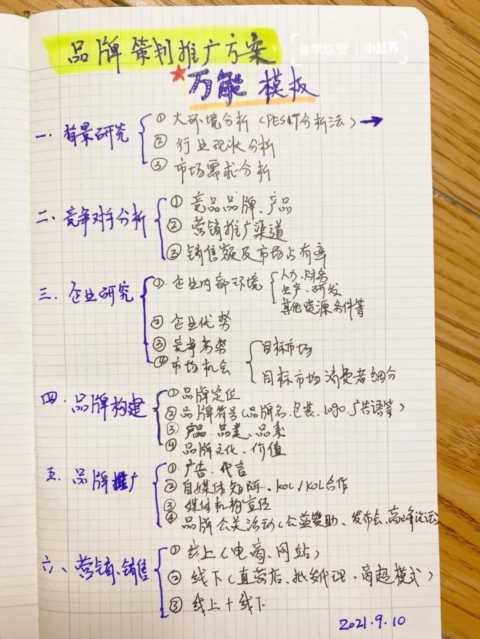 品牌策划推广方案
万能模板
一. 背景研究
① 大环境分析（PEST分析法）→
② 行业现状分析
③ 市场需求分析
二. 竞争对手分析
① 竞品品牌、产品
② 营销推广渠道
③ 销售额及市场占有率
三. 企业研究
① 企业内部环境
人力.财务
生产.研发
其他资源条件等
② 企业优势
③ 竞争劣势
④ 市场机会
目标市场
目标市场消费者细分
四. 品牌构建
① 品牌定位
② 品牌符号（品牌名.包装.logo.广告语等）
③ 产品.品类.品系
④ 品牌文化.价值
五. 品牌推广
① 广告.代言
② 自媒体矩阵.KOC/KOL合作
③ 媒体机构宣传
④ 品牌公关活动（公益赞助、发布会、高峰论坛）
六、营销、销售
① 线上（电商、网站）
② 线下（直营店、批发代理、商超模式）
③ 线上+线下
2021.9.10